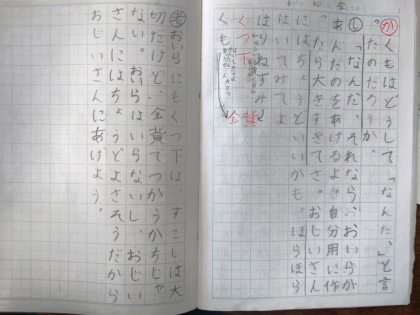 か くもはどうして「なんだ、」と言
ったのだろうか。
し「なんだ、それなら、おいらが
あんだのをあげるよ。自分用に作
ったら大きすぎてさ。おじいさん
にはちょうどいいかも。ほらほら
はいてみてよ
はりねずみ
くつ下 金貨
くも
おいらにもくつ下は、すこしは大
切だけど、金貨でつかうかちじゃ
ない。おいらはいらないし、おじい
さんにはちょうどよさそうだから
おじいさんにあげよう。